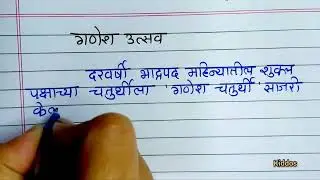 गणेश उत्सव
दरवर्षी भाद्रपद महिन्यातील शुक्ल
पक्षाच्या चतुर्थीला 'गणेश चतुर्थी' साजरी
के
Kiddos